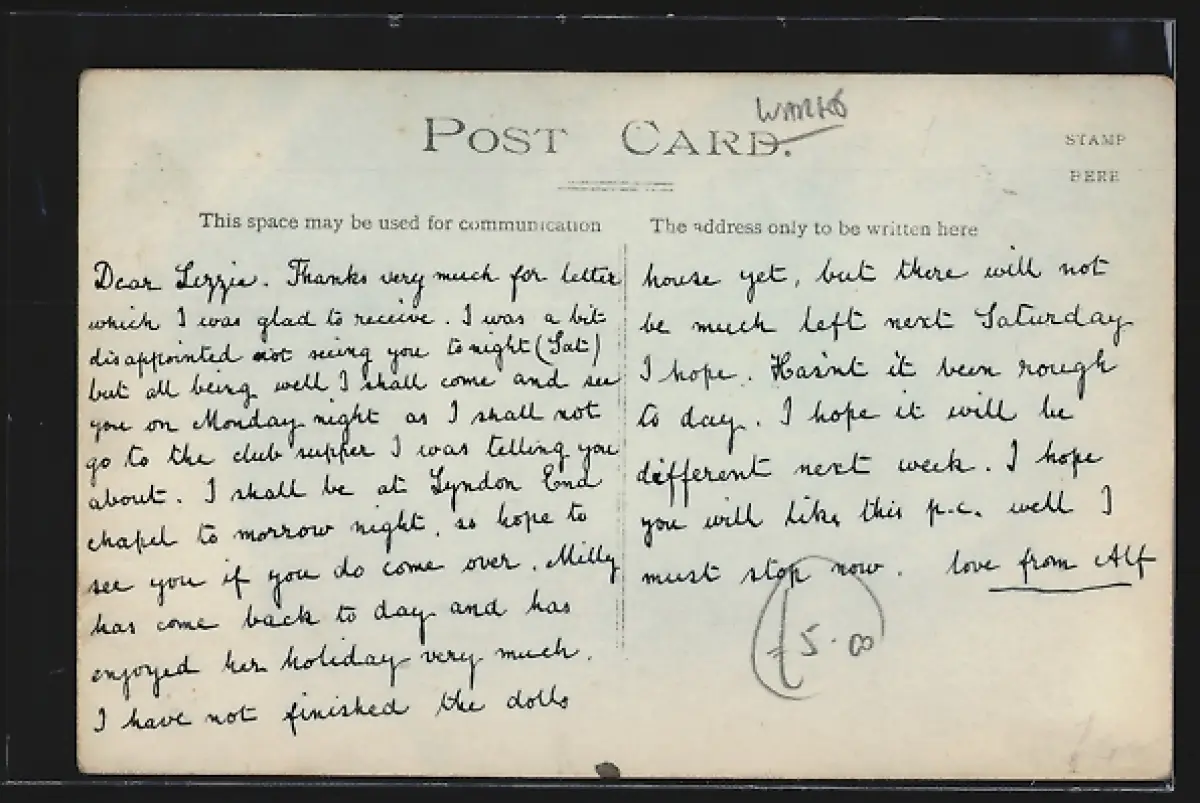 WARKS
POST CARD.
STAMP
HERE
This space may be used for communication
The address only to be written here
Dear Lezzie. Thanks very much for letter
which I was glad to receive. I was a bit
disappointed not seeing you to night (Sat)
but all being well I shall come and see
you on Monday night as I shall not
go to the club supper I was telling you
about. I shall be at Lyndon End
chapel to morrow night, so hope to
see you if you do come over. Milly
has come back to day and has
enjoyed her holiday very much.
I have not finished the dolls
house yet, but there will not
be much left next Saturday
I hope. Hasn't it been rough
to day. I hope it will be
different next week. I hope
you will like this p.c. well I
must stop now. love from Alf
£5.00